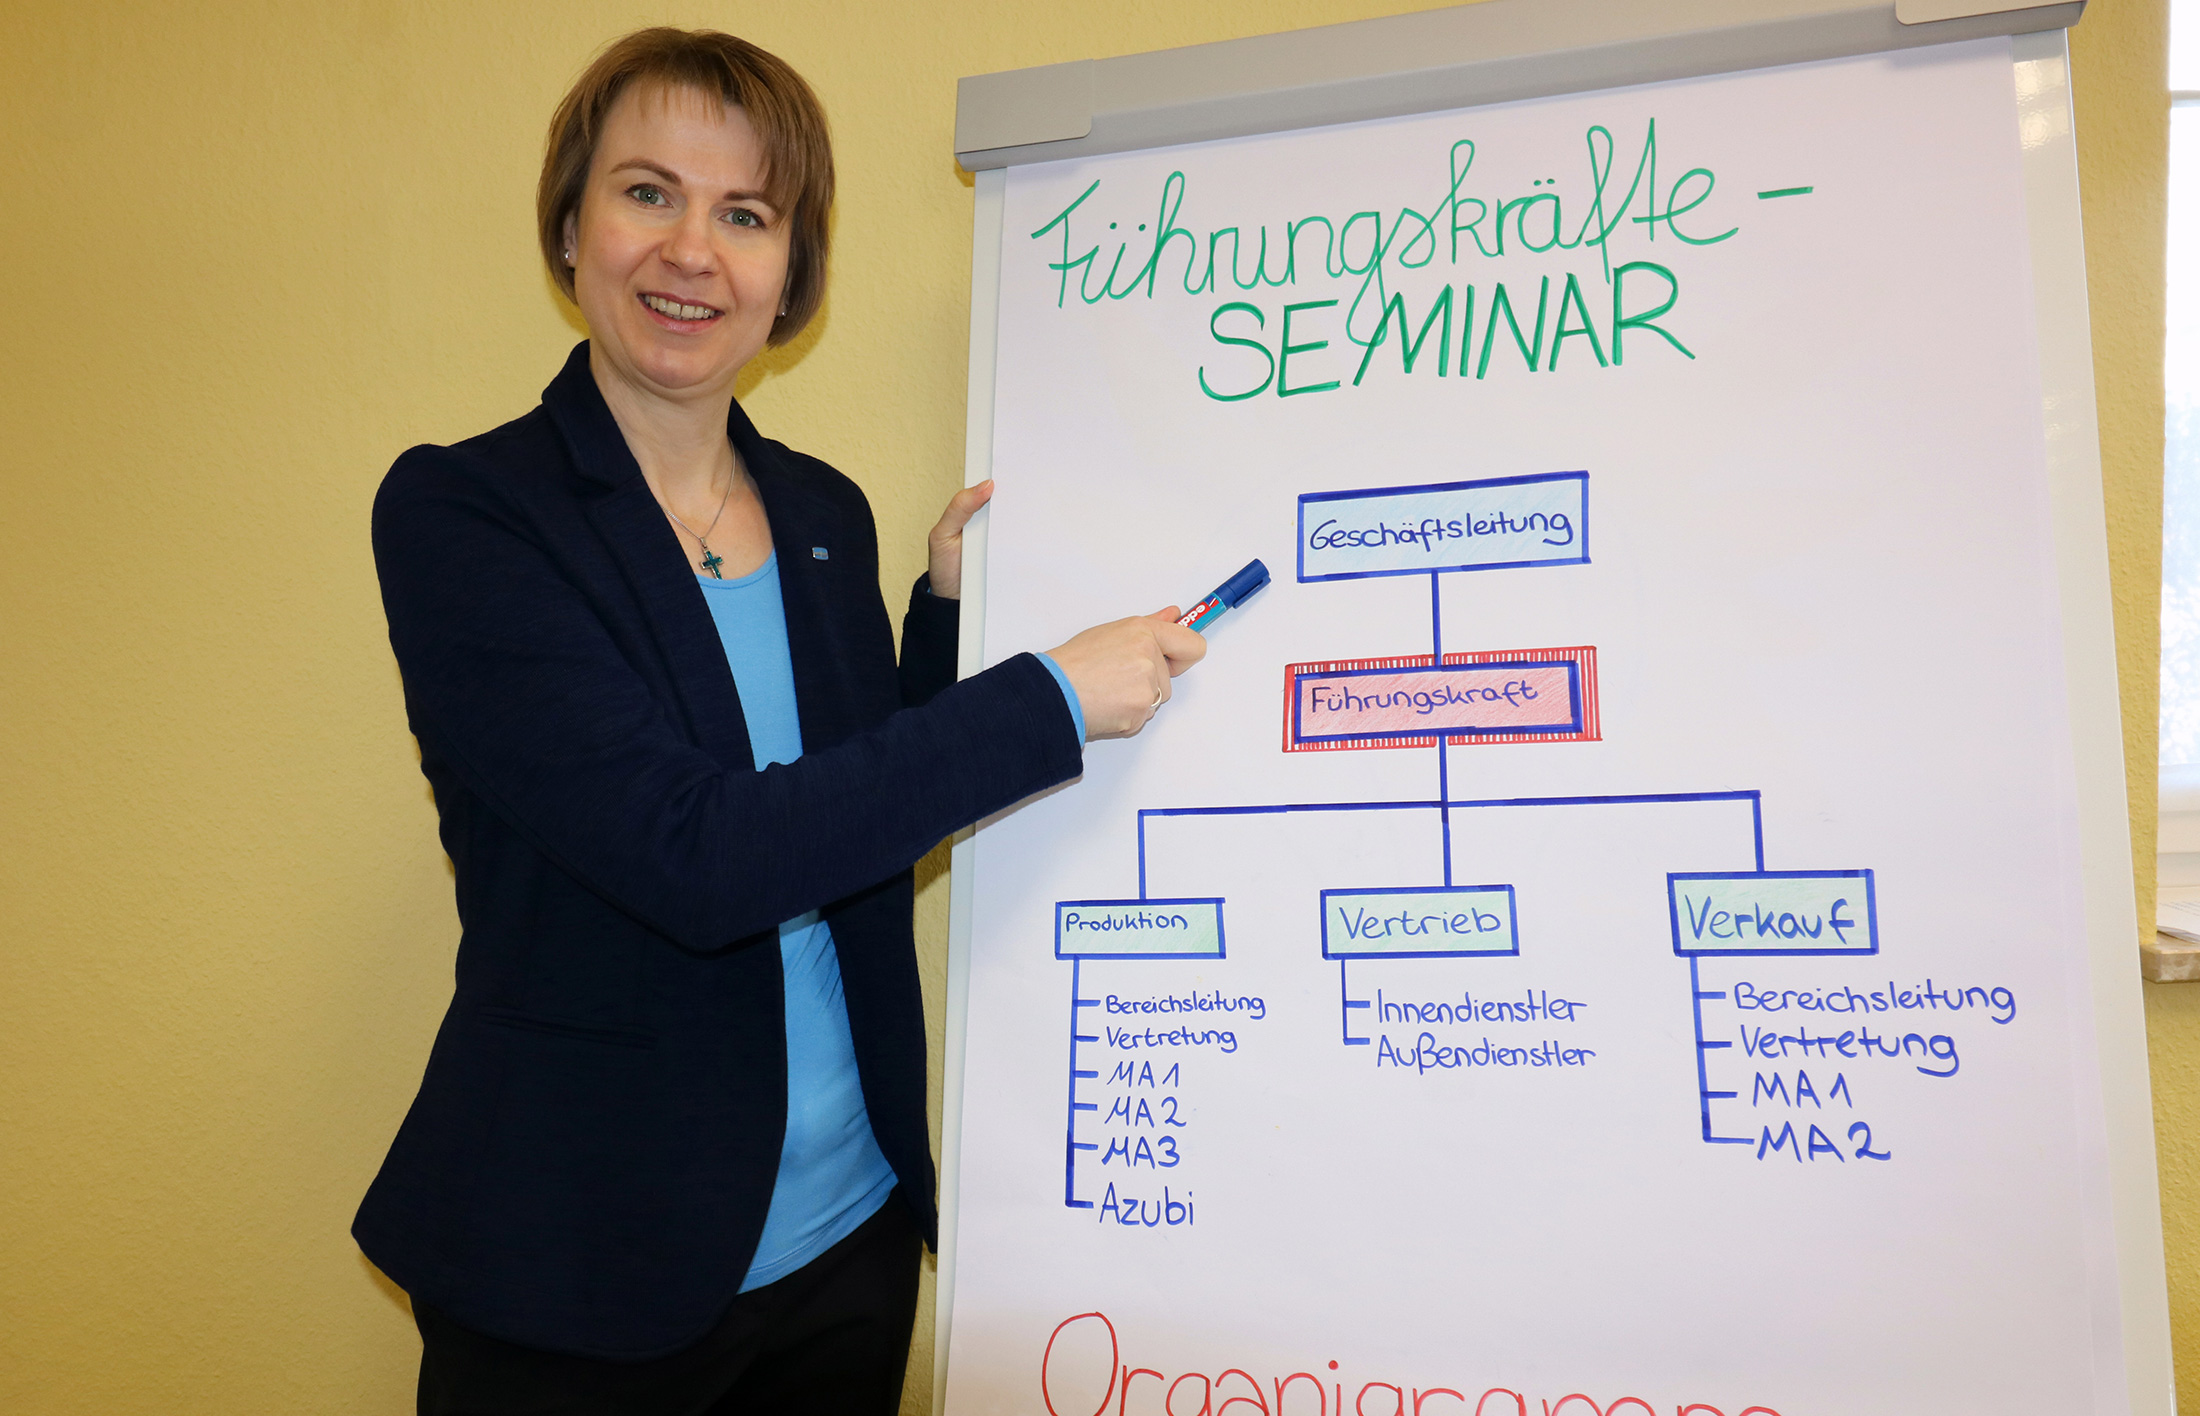 Führungskräfte-
SEMINAR
Geschäftsleitung
Führungskraft
Produktion
Bereichsleitung
Vertretung
MA1
MA2
MA3
Azubi
Vertrieb
Innendienstler
Außendienstler
Verkauf
Bereichsleitung
Vertretung
MA1
MA2